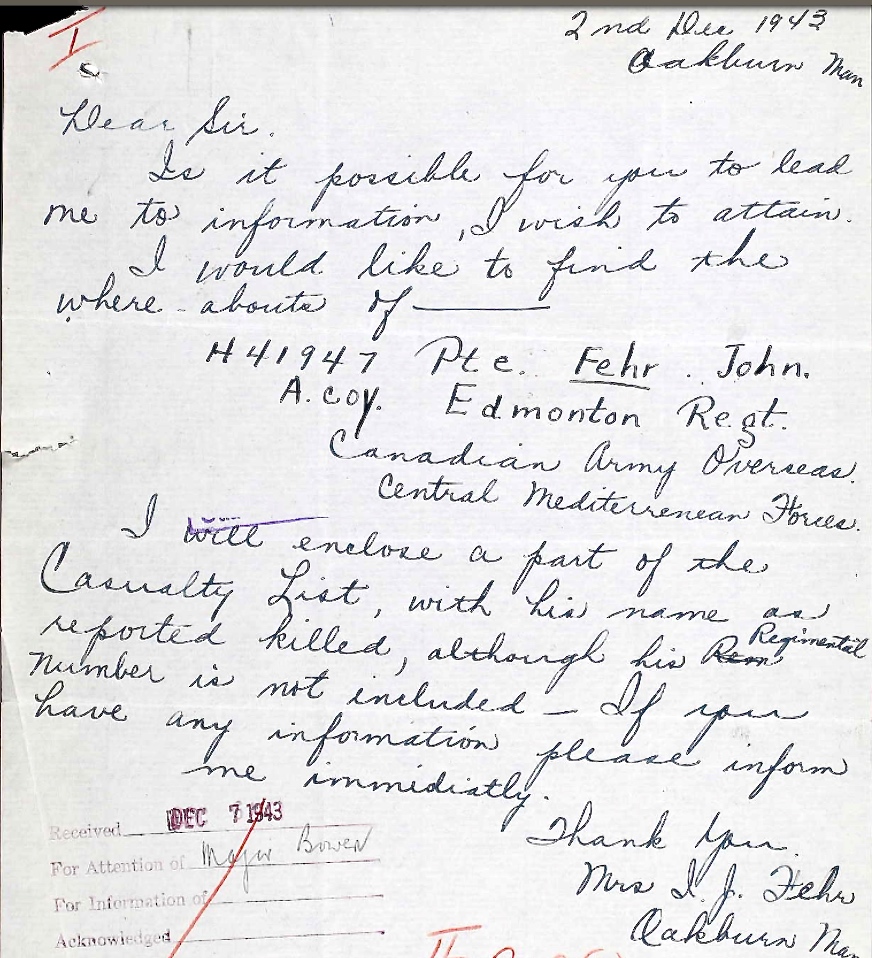 I
2nd Dec 1943
Oakburn Man
Dear Sir.
Is it possible for you to lead
me to information, I wish to attain.
I would like to find the
where-abouts of ______
H41947 Pte. Fehr. John.
A. coy. Edmonton Regt.
Canadian Army Overseas.
Central Mediterrenean Forces.
I will enclose a part of the
Casualty List, with his name as
reported killed, although his Rem Regimental
Number is not included — If you
have any information please inform
me immidiatly.
Thank You.
Mrs I. J. Fehr
Oakburn Man
Received DEC 7 1943
For Attention of Major Bowen
For Information of
Acknowledged
II